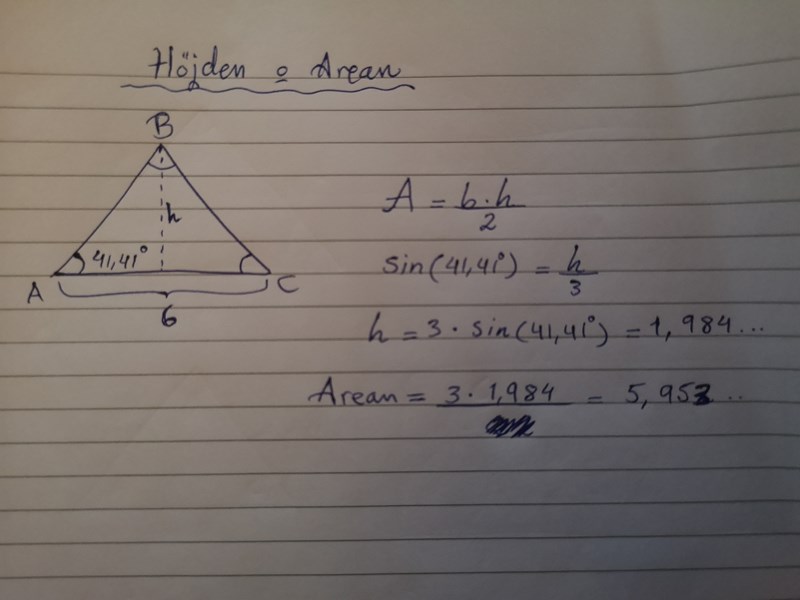 Höjden o Arean
B
h
41,41°
A
C
6
A = b·h/2
sin(41,41°) = h/3
h = 3 · sin(41,41°) = 1,984...
Arean = 3 · 1,984 = 5,953..